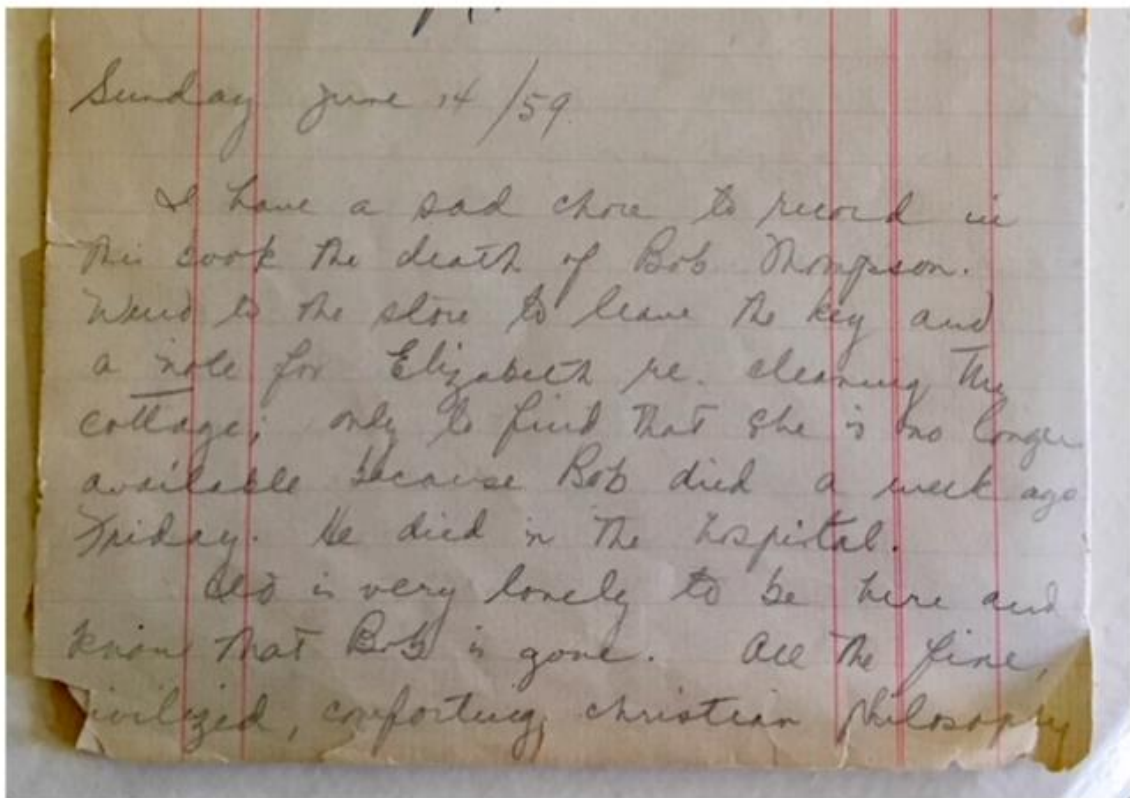 Sunday June 14/59.
I have a sad chore to record in
this book the death of Bob Thompson.
Went to the store to leave the key and
a note for Elizabeth re. cleaning the
cottage; only to find that she is no longer
available because Bob died a week ago
Friday. He died in the hospital.
It is very lonely to be here and
know that Bob is gone. All the fine,
civilized, comforting, christian philosophy